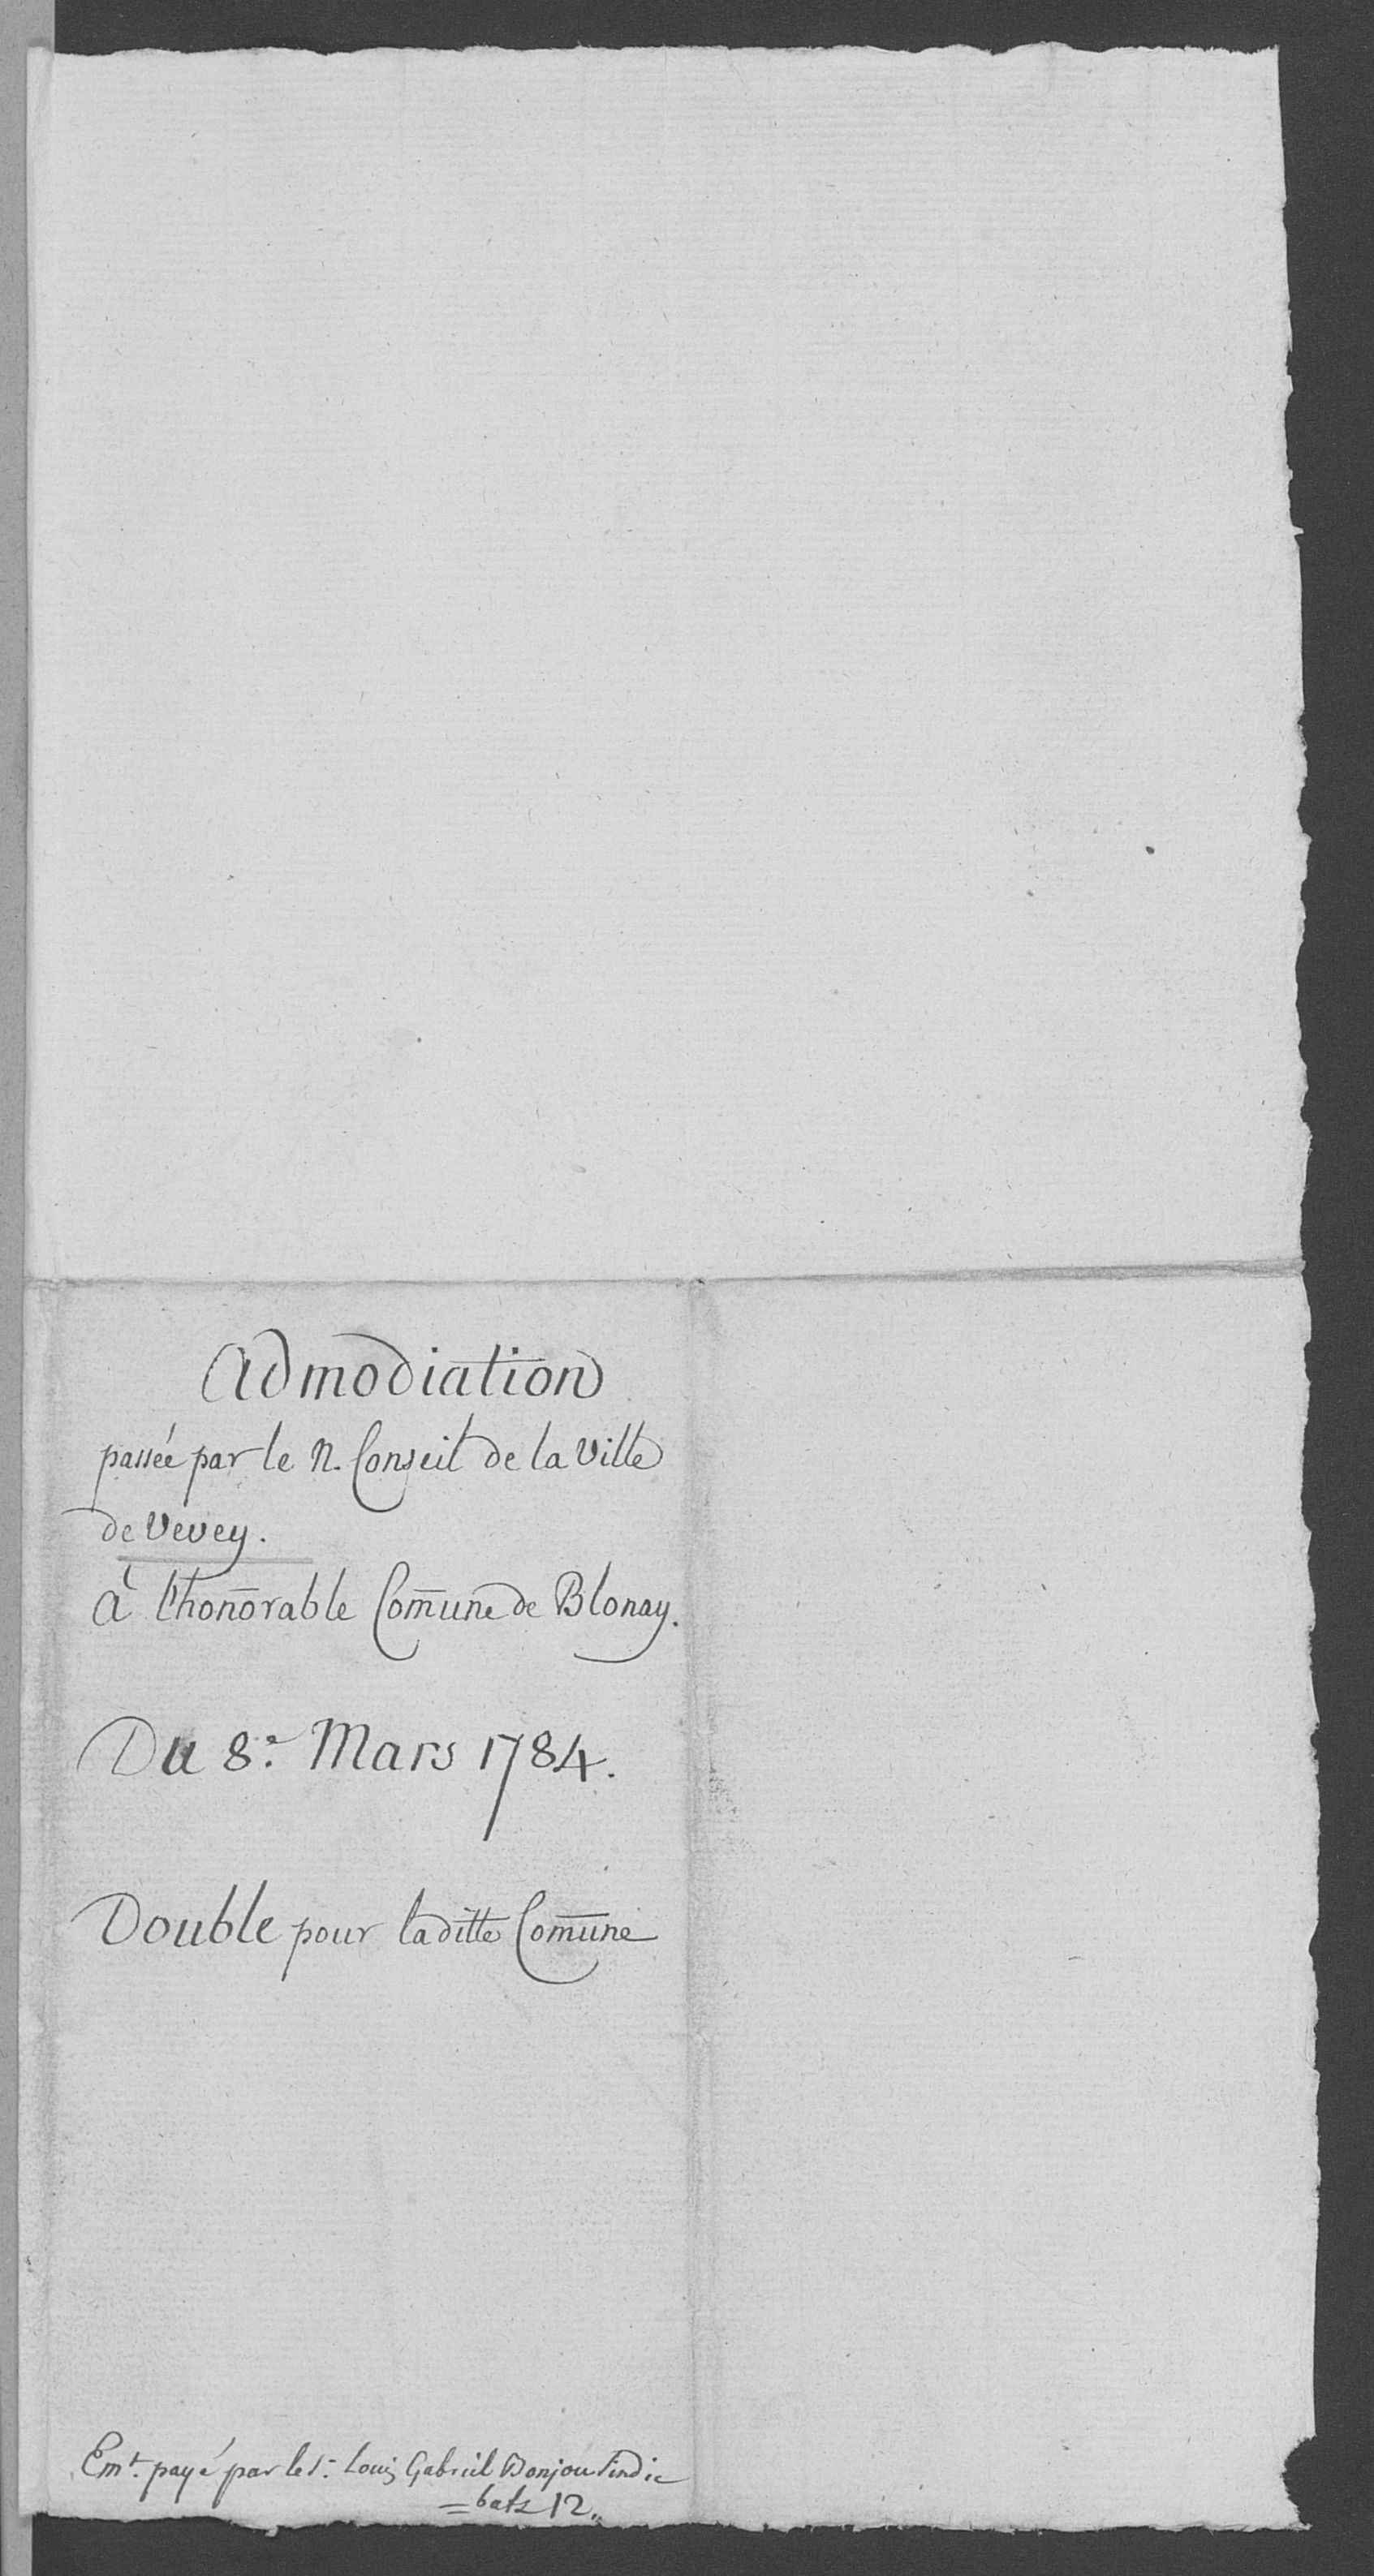 Admodiation
passée par le N. Conseil de la Ville
de Vevey.
à l'honōrable Com̄une de Blonay.
Du 8.e Mars 1784.
Double pour laditte Com̄une
Emt. payé par le Sr. Louis Gabriel Bonjou Sindic
= batz 12 „